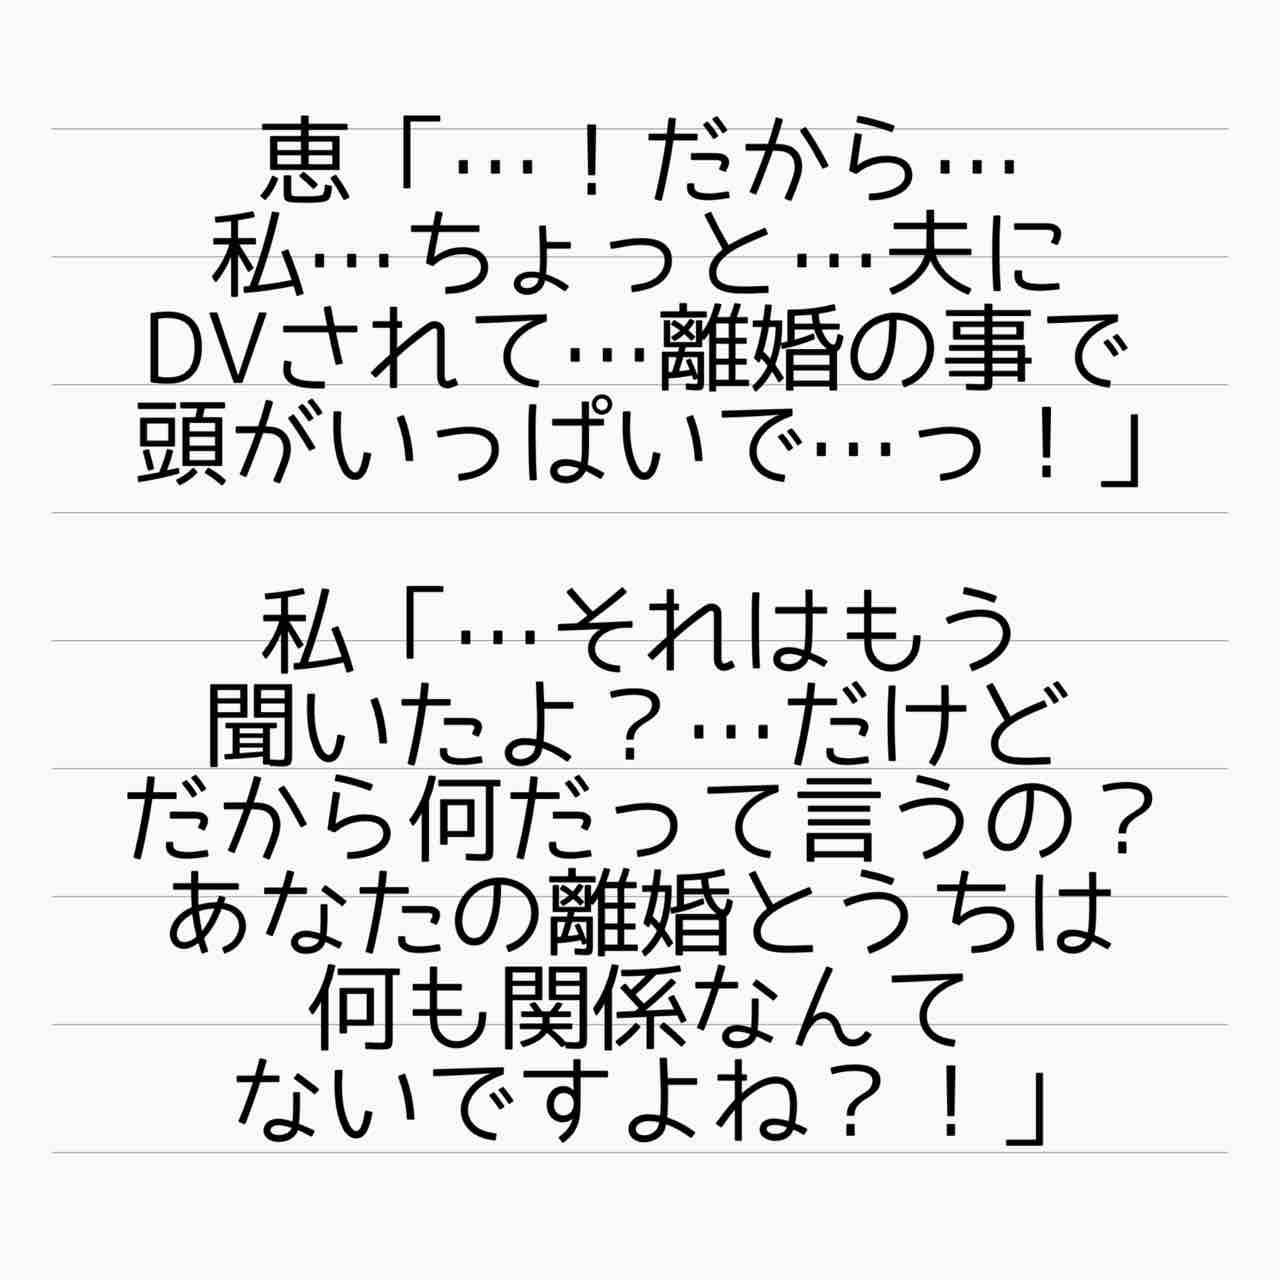 恵「…！だから…
私…ちょっと…夫に
DVされて…離婚の事で
頭がいっぱいで…っ！」
私「…それはもう
聞いたよ？…だけど
だから何だって言うの？
あなたの離婚とうちは
何も関係なんて
ないですよね？！」